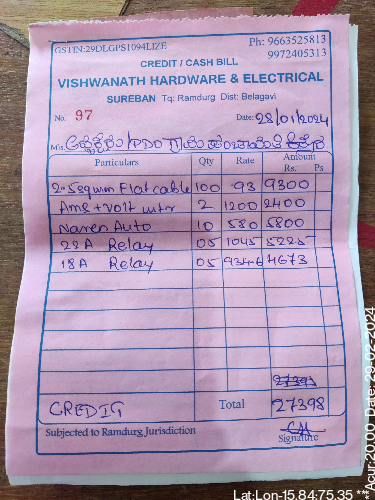 GSTIN:29DLGPS1094L1ZE Ph: 9663525813
9972405313
CREDIT / CASH BILL
VISHWANATH HARDWARE & ELECTRICAL
SUREBAN Tq: Ramdurg Dist: Belagavi
No. 97 Date: 28/01/2024
M/s.
Particulars Qty Rate Amount
Rs. Ps
2.5 sqmm Flat cable 100 93 9300
Amp + volt mtr 2 1200 2400
Naren Auto 10 580 5800
22A Relay 05 1045 5225
18A Relay 05 934.6 4673
27393
CREDIT Total 27398
Subjected to Ramdurg Jurisdiction
Signature
Lat:Lon-15.84:75.35 ***Acur:20.00 Date- 29-02-2024